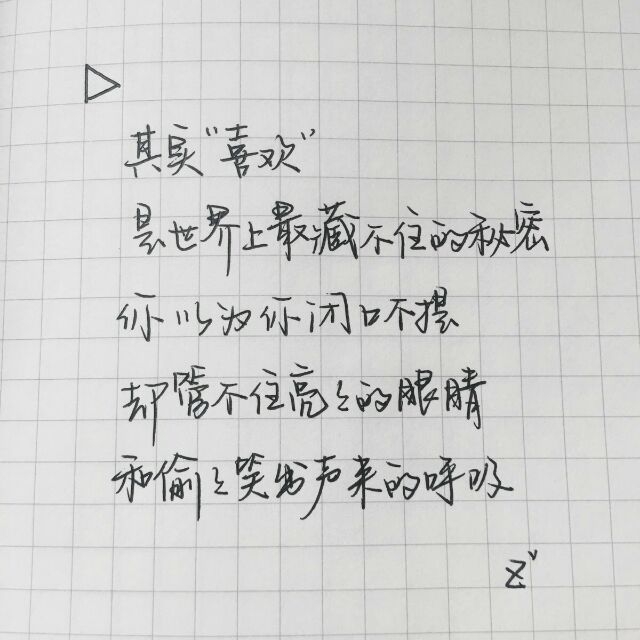 其实“喜欢”
是世界上最藏不住的秘密
你以为你闭口不提
却管不住亮亮的眼睛
和偷偷笑出声来的呼吸